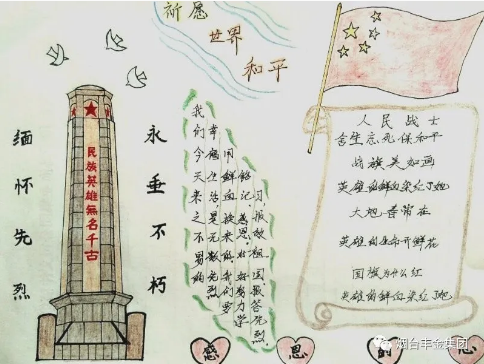 祈愿
世界
和平
缅怀先烈
民族英雄無名千古
永垂不朽
我们今天来之不易的
幸福生活是无数先烈
用鲜血换来的
习报效祖国报答先烈.
人民战士
舍生忘死保和平
战旗美如画
英雄的鲜血染红了她
大地春常在
英雄的生命开鲜花
国旗为什么红
英雄的鲜血染红了她
感 恩 的 心
烟台丰金集团